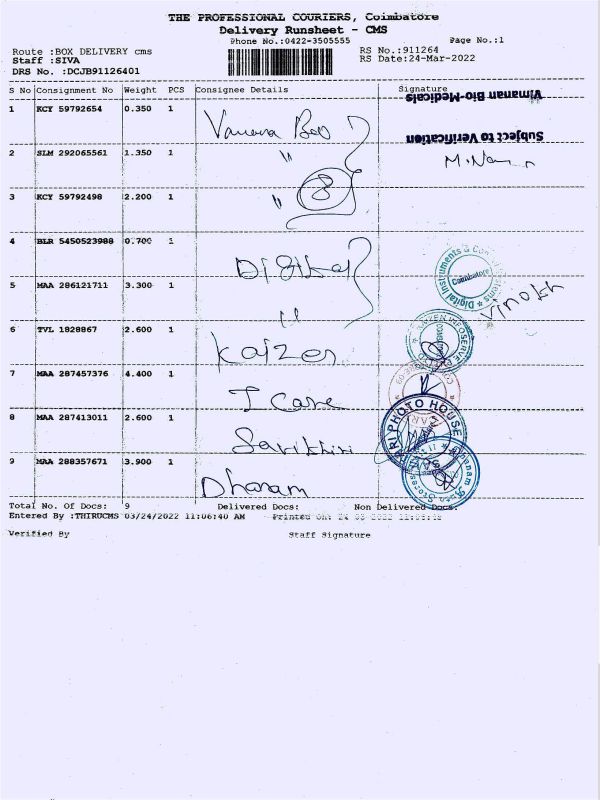 THE PROFESSIONAL COURIERS, Coimbatore
Delivery Runsheet - CMS
Phone No.:0422-3505555
Page No.:1
Route :BOX DELIVERY cms
RS No.:911264
Staff :SIVA
RS Date:24-Mar-2022
DRS No. :DCJB91126401
S No Consignment No Weight PCS Consignee Details Signature
Vimanan Bio-Medicals
1 KCY 59792654 0.350 1
Subject to Verification
2 SLM 292065561 1.350 1 "
3 KCY 59792498 2.200 1 " 8
4 BLR 5450523988 0.700 1 Digital
Digital Instruments & Systems
Coimbatore
5 MAA 286121711 3.300 1 "
Vinoth
6 TVL 1828867 2.600 1 Kaizen
KAIZEN INFOSERVE
7 MAA 287457376 4.400 1 I Care
8 MAA 287413011 2.600 1
PHOTO HOUSE
9 MAA 288357671 3.900 1 Dhanam
Total No. Of Docs: 9 Delivered Docs: Non Delivered Docs:
Entered By :THIRUCMS 03/24/2022 11:06:40 AM Printed On:
Verified By Staff Signature